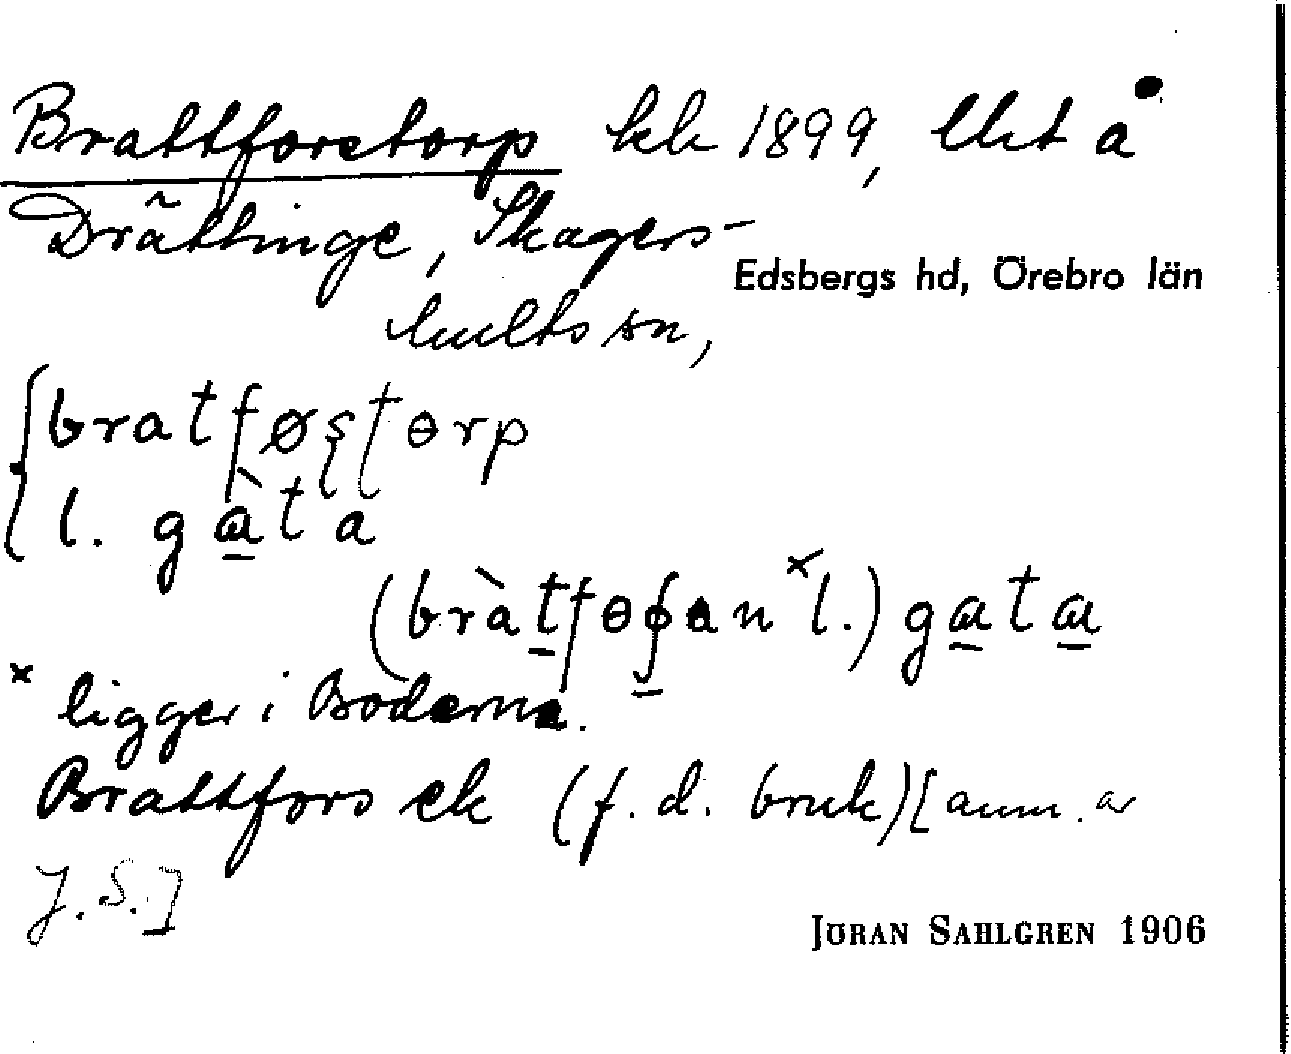 Brattforstorp kk 1899, lht å
Drättinge, Skagers-
Edsbergs hd, Örebro län
hults sn,
bratføstɵrp
l. gàta
(bràtfɵʂan ˣl.) gata
× ligger i Boderna.
Brattfors ek (f.d. bruk) [anm. av
J.S.]
JÖRAN SAHLGREN 1906